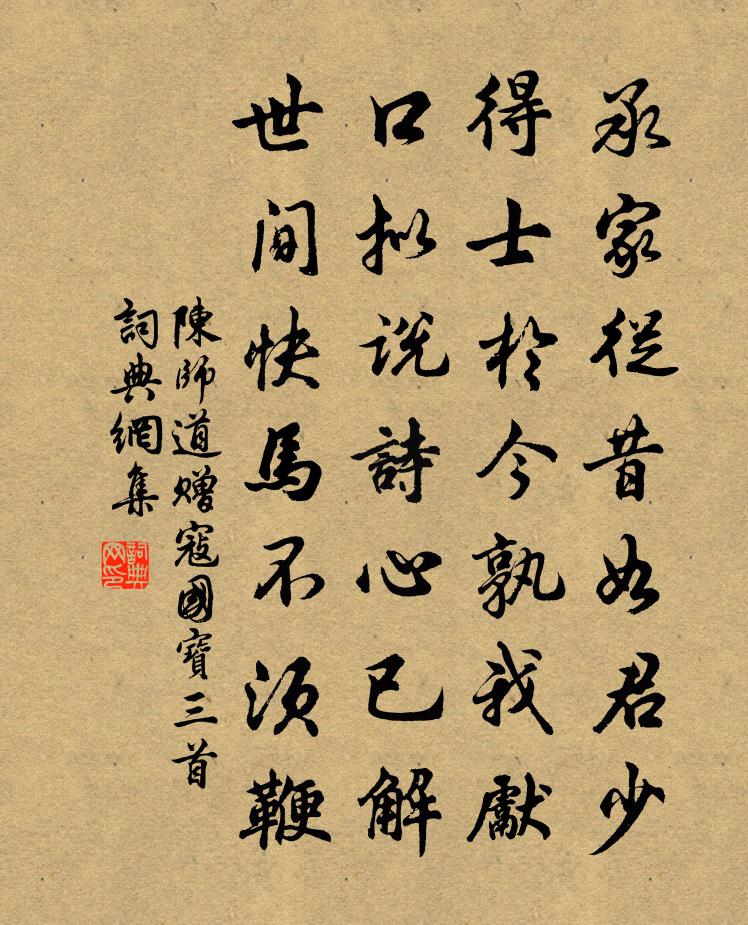 承家從昔如君少
得士於今孰我獻
口擬說詩心已解
世間快馬不須鞭
陳師道贈寇國寶三首
詞典網集
詞典網印